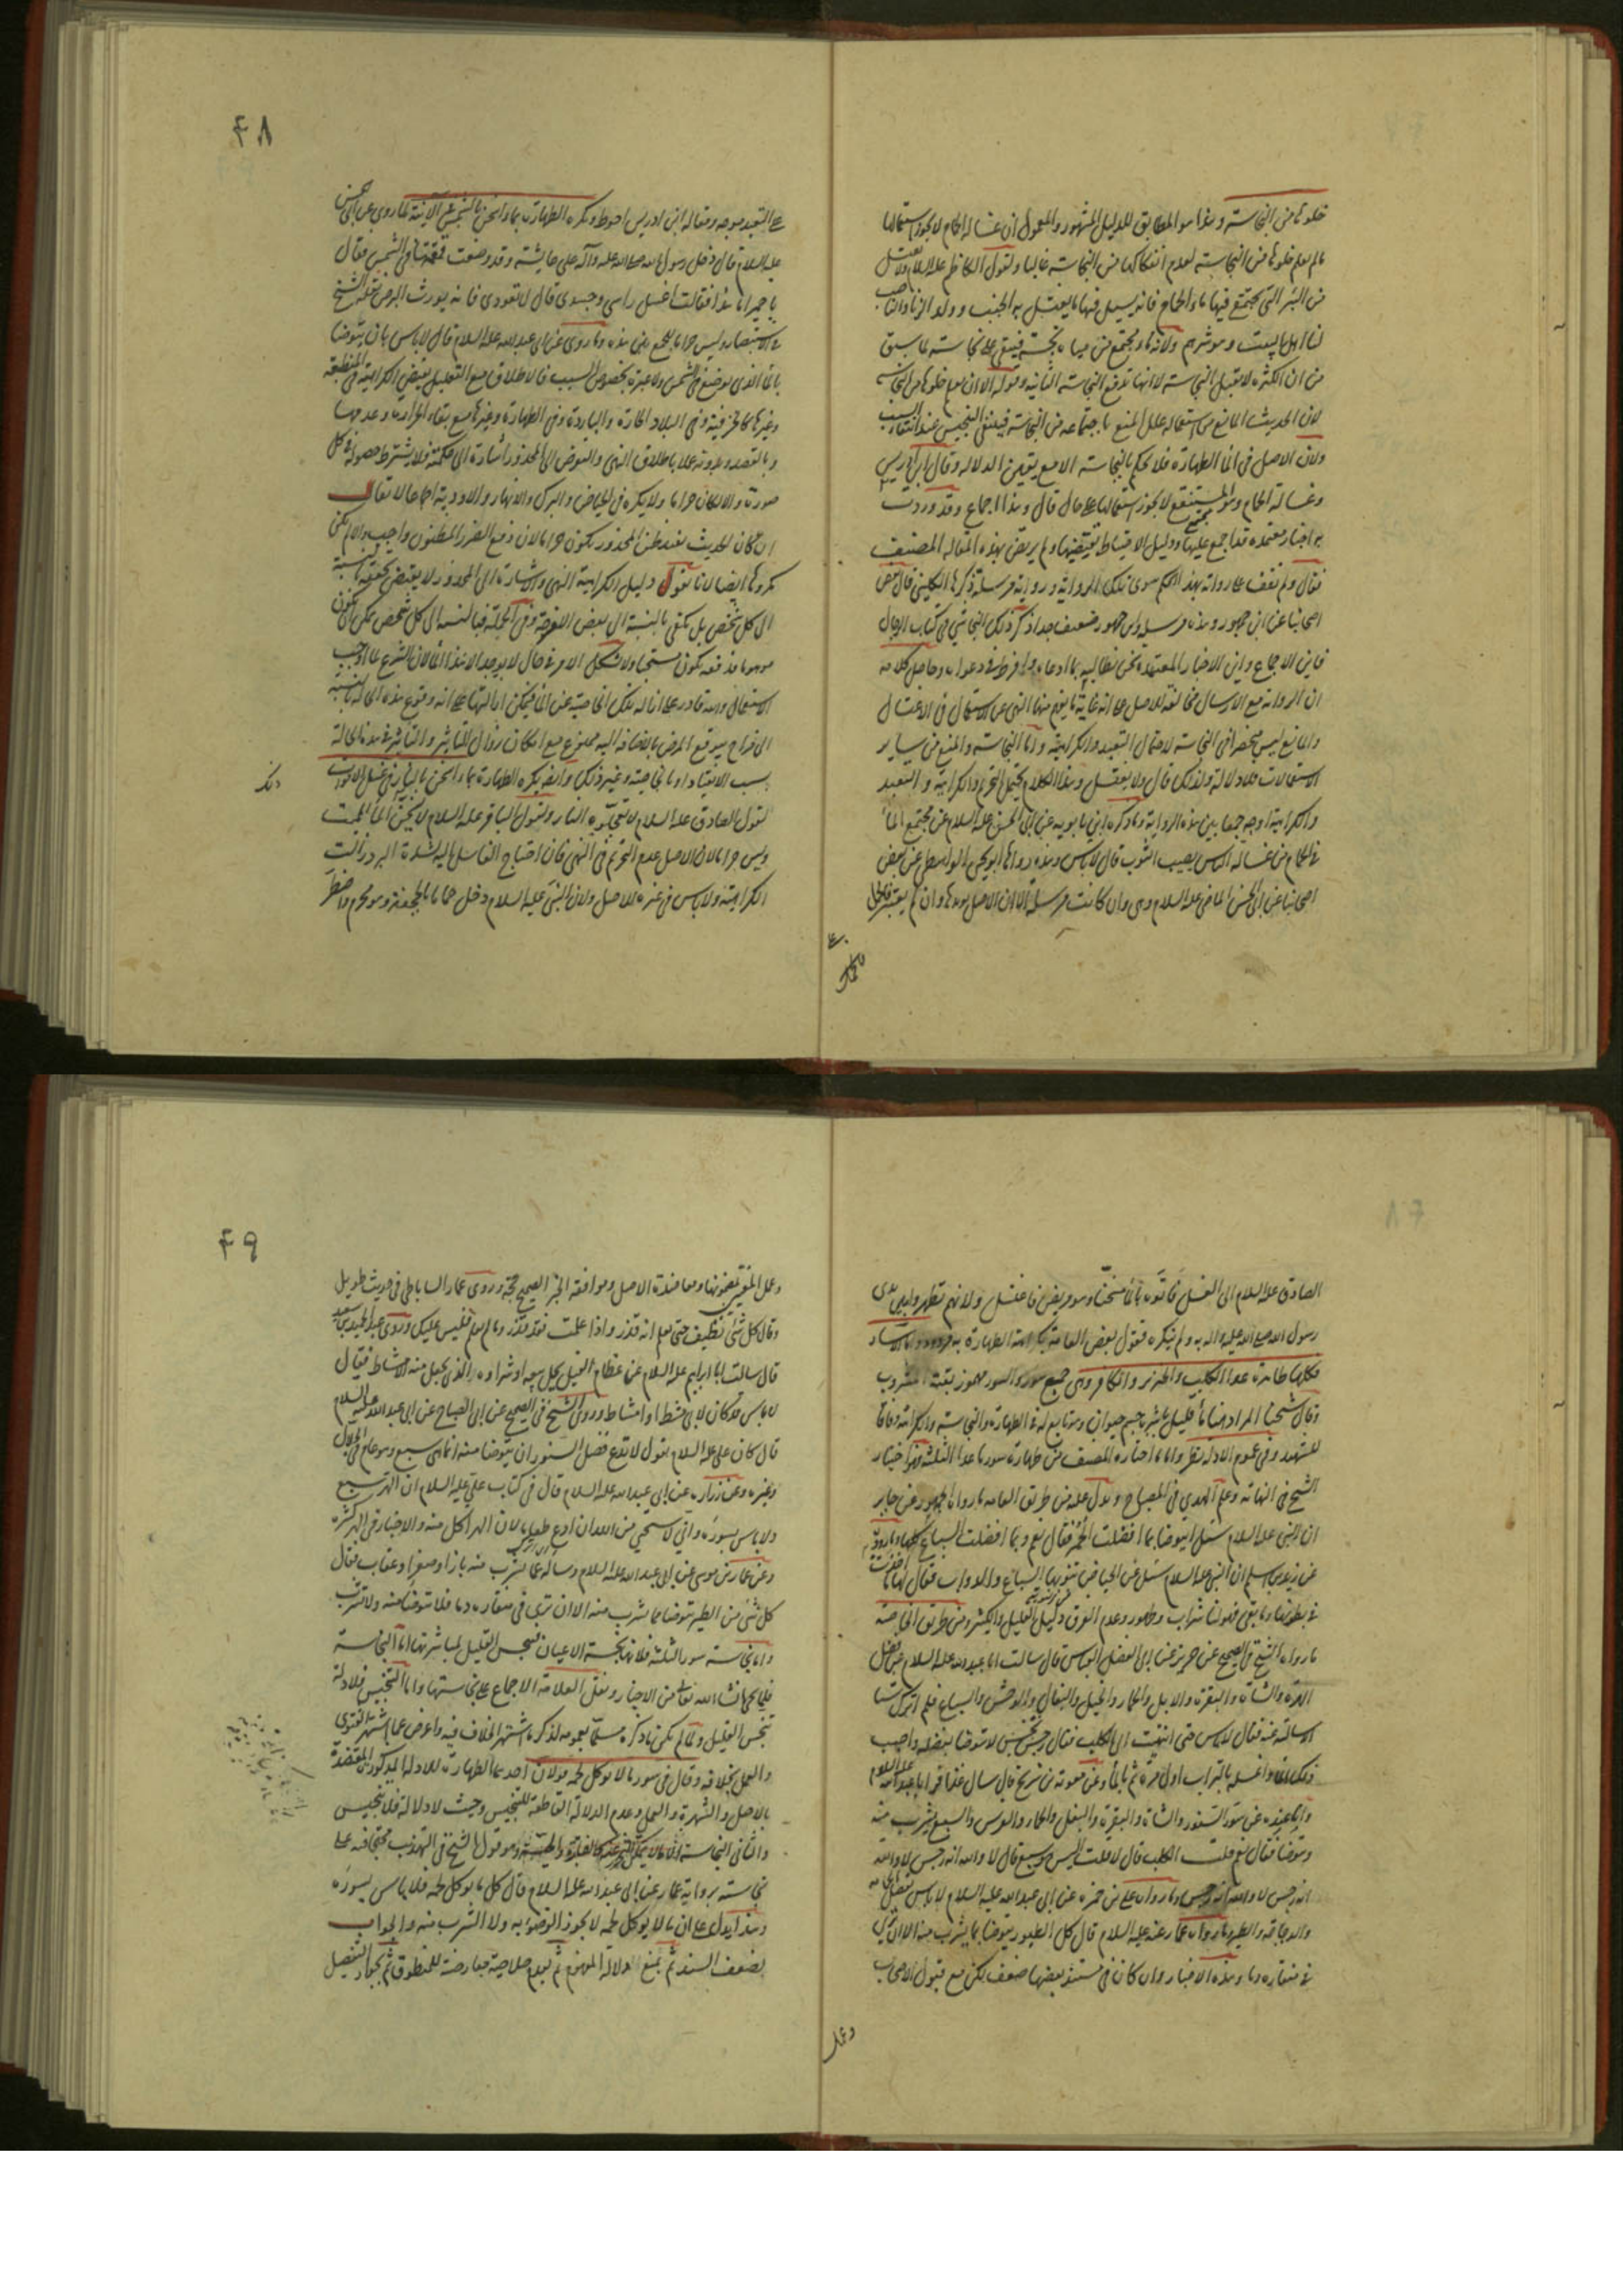 خلوها من النجاسة وهذا هو المطابق للدليل المشهور والمعمول ان غسالة الحمام لا يجوز استعمالها
ما لم يعلم خلوها من النجاسة لعدم انفكاكها من النجاسة غالبا ولقول الكاظم عليه السلام ولا تغتسل
من البئر التي يجتمع فيها ماء الحمام فانه يسيل فيها ما يغتسل به الجنب وولد الزنا والناصب
لنا اهل البيت وهو شرهم ولانه ماء مجتمع من مياه نجسة فيبقى على نجاسته لما سبق
من ان الكثرة لا تقبل النجاسة لانها تدفع النجاسة الثانية وقوله الا ان يعلم خلوها من النجاسة
لان الحديث المانع من استعماله علل المنع باجتماعه من النجاسة فينتفي التنجيس عند انتفاء السبب
ولان الاصل في الماء الطهارة فلا يحكم بالنجاسة الا مع يقين الدلالة وقال ابن ادريس
وغسالة الحمام وهو المستنقع لا يجوز استعمالها على حال قال وهذا اجماع وقد وردت
به اخبار معتمدة قد اجمع عليها ودليل الاحتياط يقتضيها ولم يرتض بهذه المقالة المصنف
فقال ولم نقف على رواية بهذا الحكم سوى تلك الرواية ورواية مرسلة ذكرها الكليني قال بعض
اصحابنا عن ابن جمهور وهذه مرسلة وابن جمهور ضعيف جدا ذكر ذلك النجاشي في كتاب الرجال
فاين الاجماع واين الاخبار المعتمدة نحن نطالبه بما ادعاه وافرط في دعواه وحاصل كلامه
ان الرواية مع الارسال مخالفة للاصل على انه غاية ما يفهم منها النهي عن الاستعمال في الاغتسال
والمانع ليس منحصرا في النجاسة لاحتمال التعبد والكراهية واما النجاسة والمنع من ساير
الاستعمالات فلا دلالة ولذلك قال ولا يغتسل وهذا الكلام يحتمل التحريم والكراهية والتعبد
والكراهية اوجه جمعا بين هذه الرواية وما ذكره ابن بابويه عن ابي الحسن عليه السلام عن مجتمع الماء
في الحمام من غسالة الناس يصيب الثوب قال لا باس وهذه رواها ابو يحيى الواسطي عن بعض
اصحابنا عن ابي الحسن الماضي عليه السلام وهي وان كانت مرسلة الا ان الاصل يؤيدها وان لم يعتبر
٤٨
على التعبد موجه ومقاله ابن ادريس احوط وتكره الطهارة بماء اسخن بالشمس في الآنية لما روي عن ابي الحسن
عليه السلام قال دخل رسول الله صلى الله عليه وآله على عايشة وقد وضعت قمقمتها في الشمس فقال
يا حميرا ما هذا فقالت اغسل راسي وجسدي قال لا تعودي فانه يورث البرص نقله الشيخ
في الاستبصار وليس حراما للجمع بين هذه وما روي عن ابي عبد الله عليه السلام قال لا باس بان يتوضا
بالماء الذي يوضع في الشمس ولا عبرة بخصوص السبب فالاطلاق مع التعليل يقتضي الكراهية في المنطبعة
وغيرها كالخزفية وفي البلاد الحارة والباردة وفي الطهارة وغيرها مع بقاء الحرارة وعدمها
وبالقصد وبدونه عملا باطلاق النهي والتعرض الى المحذور اشارة الى حكمته فلا يشترط حصوله في كل
صورة والا لكان حراما ولا يكره في الحياض والبرك والانهار والاودية اجماعا لا يقال
ان كان الحديث يفيد ظن المحذور يكون حراما لان دفع الضرر المظنون واجب والا لم يكن
مكروها ايضا لانا نقول دليل الكراهية النهي والاشارة الى المحذور لا يقتضي تحققه بالنسبة
الى كل شخص بل يكفي بالنسبة الى بعض الامزجة وفي الجملة فبالنسبة الى كل شخص يمكن ان يكون
موهوما فدفعه يكون مستحبا ولا يشكل الامر في حال لا يوجد الا هذا الماء لان الشرع لما اوجب
الاستعمال والله قادر على ازالة تلك الخاصية عن الماء فيمكن ازالتها على انه وقوع هذه الحالة بالنسبة
الى مزاج يتوقع المرض بالاضافة اليه ممنوع مع امكان زوال التاثير والتاثر في هذه الحالة
بسبب الاعتياد او بالخاصية وغير ذلك وايضا يكره الطهارة بماء اسخن بالنار في غسل الاموات
لقول الصادق عليه السلام لا تعجلوه النار ولقول الباقر عليه السلام لا يسخن الماء للميت
وليس حراما لان الاصل عدم التحريم في النهي فان احتياج الغاسل اليه لشدة البرد زالت
الكراهية ولا باس في غيره للاصل ولان النبي عليه السلام دخل حماما بالجحفة وهو محرم واضطر
الصادق عليه السلام الى الغسل فاتوه بماء مسخنا وهو مريض فاغتسل ولانهم تطهروا بين يدي
رسول الله صلى الله عليه واله به ولم ينكره فقول بعض العامة بكراهة الطهارة به مردود واما الآسار
فكلها طاهرة عدا الكلب والخنزير والكافر وهي جمع سؤر والسؤر مهموز بقية المشروب
وقال شيخنا المراد هنا ماء قليل باشره جسم حيوان وهو تابع له في الطهارة والنجاسة والكراهة وفاقا
للشهيد وفي عموم الادلة نظر واما ما اختاره المصنف من طهارة سور ما عدا الثلثة فهو اختيار
الشيخ في النهاية وعلم الهدى في المصباح ويدل عليه من طريق العامة ما رواه الجمهور عن جابر
ان النبي عليه السلام سئل ايتوضا بما افضلت الحمر فقال نعم وبما افضلت السباع كلها وما رووه
عن زيد بن اسلم ان النبي عليه السلام سئل عن الحياض تنوبها السباع والدواب فقال لها ما اخذت
في بطونها وما بقي فهو لنا شراب وطهور وعدم الفرق دليل القليل والكثير ومن طريق الخاصة
ما رواه الشيخ في الصحيح عن حريز عن ابي الفضل العباس قال سالت ابا عبد الله عليه السلام عن فضل
الهرة والشاة والبقرة والابل والحمار والخيل والبغال والوحش والسباع فلم اترك شيئا
الا سالته عنه فقال لا باس حتى انتهيت الى الكلب فقال رجس نجس لا تتوضا بفضله واصبب
ذلك الماء واغسله بالتراب اول مرة ثم بالماء وعن معوية بن شريح قال سال عذافر ابا عبد الله عليه السلام
وانا عنده عن سؤر السنور والشاة والبقرة والبغل والحمار والفرس والسبع يشرب منه
ويتوضا فقال نعم قلت الكلب قال لا قلت اليس هو سبع قال لا والله انه رجس لا والله
انه نجس لا والله انه رجس وما رواه علي بن حمزة عن ابي عبد الله عليه السلام لا باس بفضل الحمامة
والدجاجة والطير وما رواه عمار عنه عليه السلام قال كل الطيور يتوضا بما يشرب منه الا ان ترى
في منقاره دما وهذه الاخبار وان كان في سند بعضها ضعف لكن مع قبول الاصحاب
وعمل
٤٩
وعمل المفتين بمضمونها ومعاضدة الاصل وموافقة الخبر الصحيح حجة وروى عمار الساباطي في حديث طويل
وقال كل شئ نظيف حتى يعلم انه قذر واذا علمت فقد قذر وما لم تعلم فليس عليك وروى عبد الحميد بن سعد
قال سالت ابا ابراهيم عليه السلام عن عظام الفيل يحل بيعه او شراؤه الذي يجعل منه الامشاط فقال
لا باس قد كان لابي مشط او امشاط وروى الشيخ في الصحيح عن ابي الصباح عن ابي عبد الله عليه السلام
قال كان علي عليه السلام يقول لا تدع فضل السنور ان يتوضا منه انما هي سبع وهو عام في الحلال
وغيره وعن زرارة عن ابي عبد الله عليه السلام قال في كتاب علي عليه السلام ان الهر سبع
ولا باس بسوره واني لاستحيي من الله ان ادع طعاما لان الهر اكل منه والاخبار في الهر كثيرة
وعن عمار بن موسى عن ابي عبد الله عليه السلام وساله عما يشرب منه باز او صقر او عقاب فقال
كل شئ من الطير يتوضا مما يشرب منه الا ان ترى في منقاره دما فلا تتوضا منه ولا تشرب
واما نجاسة سور الثلثة فلانها نجسة الاعيان فينجس القليل بمباشرتها اما النجاسة
فلما يجئ انشاء الله تعالى من الاخبار ونقل العلامة الاجماع على نجاستها واما التنجيس فلادلة
تنجس القليل ولما لم يكن ما ذكره مسلما بعمومه لذكره ما اشتهر الخلاف فيه واعرض عما اشتهر الفتوى
والعمل بخلافه وقال في سور ما لا يوكل لحمه قولان احدهما الطهارة للادلة المذكورة المعتضدة
بالاصل والشهرة والعمل وعدم الدلالة القاطعة للتنجيس وحيث لا دلالة فلا تنجيس
والثاني النجاسة الا ما لا يمكن التحرز عنه كالفارة والحية وهو قول الشيخ في التهذيب محتجا فيه على
نجاسته برواية عمار عن ابي عبد الله عليه السلام قال كل ما يوكل لحمه فلا باس بسوره
وهذا يدل على ان ما لا يوكل لحمه لا يجوز التوضؤ به ولا الشرب منه والجواب
بضعف السند ثم بمنع دلالة المفهوم ثم بعدم صلاحيته معارضة للمنطوق ثم بجواز التفصيل